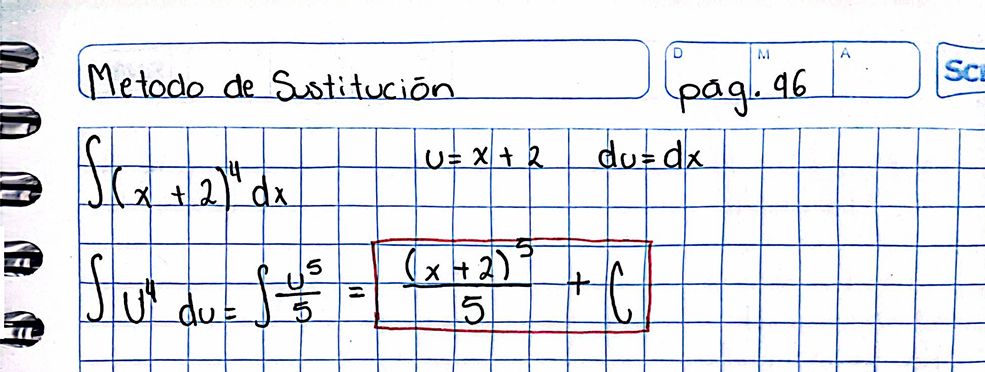 Metodo de Sustitución
D M A
pág. 96
∫(x + 2)⁴ dx    u = x + 2    du = dx
∫ u⁴ du = ∫ u⁵/5 = (x + 2)⁵/5 + C